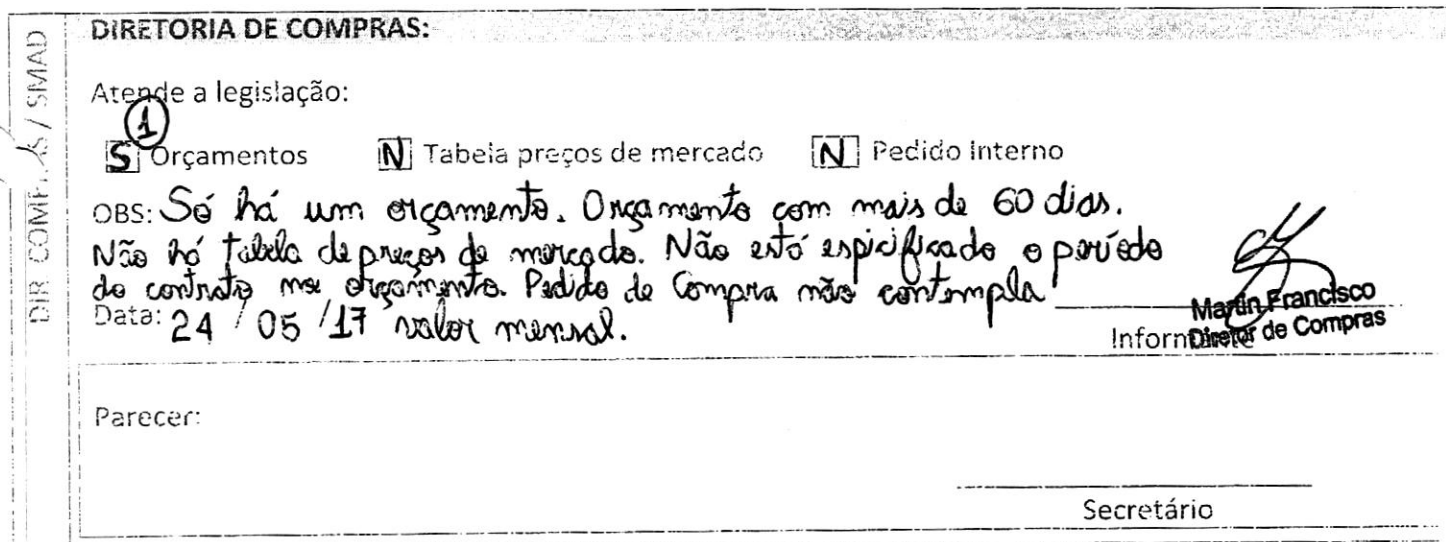 DIR COMPRAS / SMAD
DIRETORIA DE COMPRAS:
Atende a legislação:
1
S Orçamentos N Tabela preços de mercado N Pedido Interno
OBS: Só há um orçamento. Orçamento com mais de 60 dias.
Não há tabela de preços de mercado. Não está espicificado o período
do contrato no orçamento. Pedido de Compra não contempla
Data: 24 / 05 / 17 valor mensal.
Martin Francisco
Diretor de Compras
Parecer:
Secretário